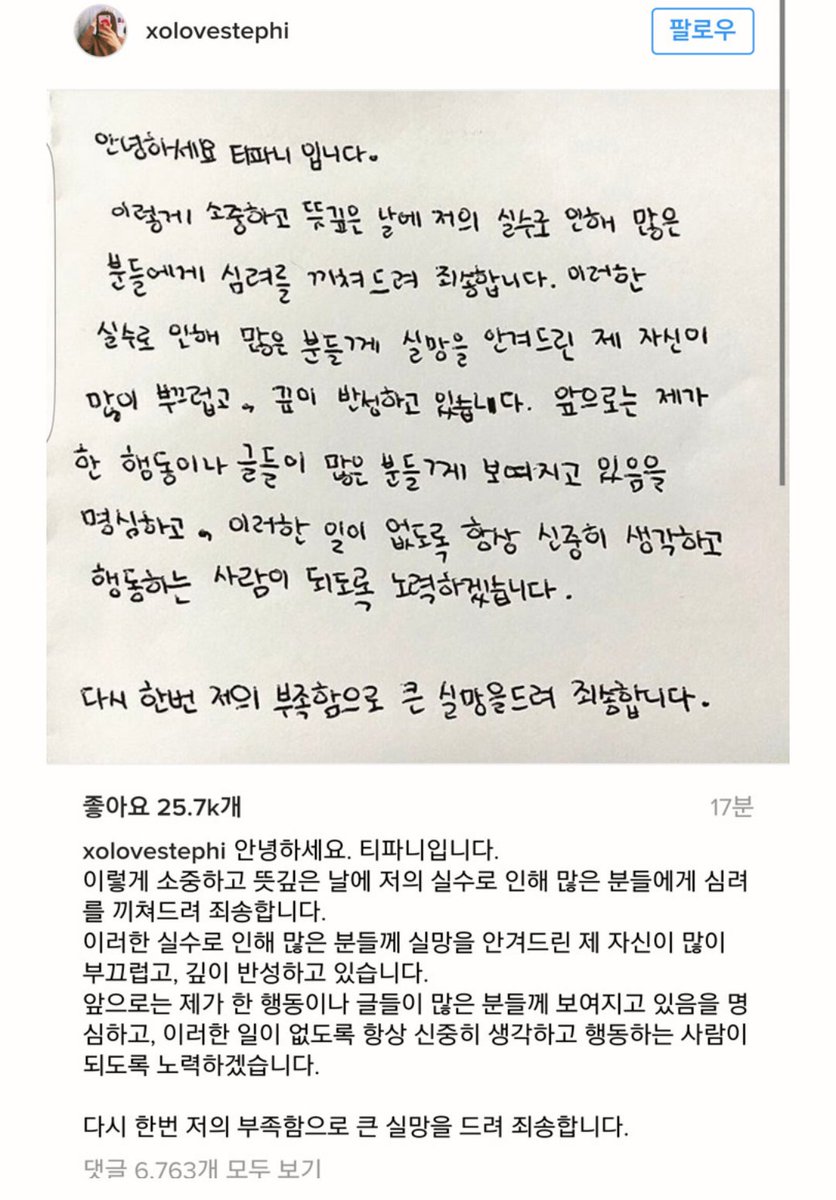 xolovestephi
팔로우
안녕하세요 티파니 입니다.
이렇게 소중하고 뜻깊은 날에 저의 실수로 인해 많은
분들에게 심려를 끼쳐드려 죄송합니다. 이러한
실수로 인해 많은 분들께 실망을 안겨드린 제 자신이
많이 부끄럽고, 깊이 반성하고 있습니다. 앞으로는 제가
한 행동이나 글들이 많은 분들께 보여지고 있음을
명심하고, 이러한 일이 없도록 항상 신중히 생각하고
행동하는 사람이 되도록 노력하겠습니다.
다시 한번 저의 부족함으로 큰 실망을드려 죄송합니다.
좋아요 25.7k개
17분
xolovestephi 안녕하세요. 티파니입니다.
이렇게 소중하고 뜻깊은 날에 저의 실수로 인해 많은 분들에게 심려
를 끼쳐드려 죄송합니다.
이러한 실수로 인해 많은 분들께 실망을 안겨드린 제 자신이 많이
부끄럽고, 깊이 반성하고 있습니다.
앞으로는 제가 한 행동이나 글들이 많은 분들께 보여지고 있음을 명
심하고, 이러한 일이 없도록 항상 신중히 생각하고 행동하는 사람이
되도록 노력하겠습니다.
다시 한번 저의 부족함으로 큰 실망을 드려 죄송합니다.
댓글 6,763개 모두 보기